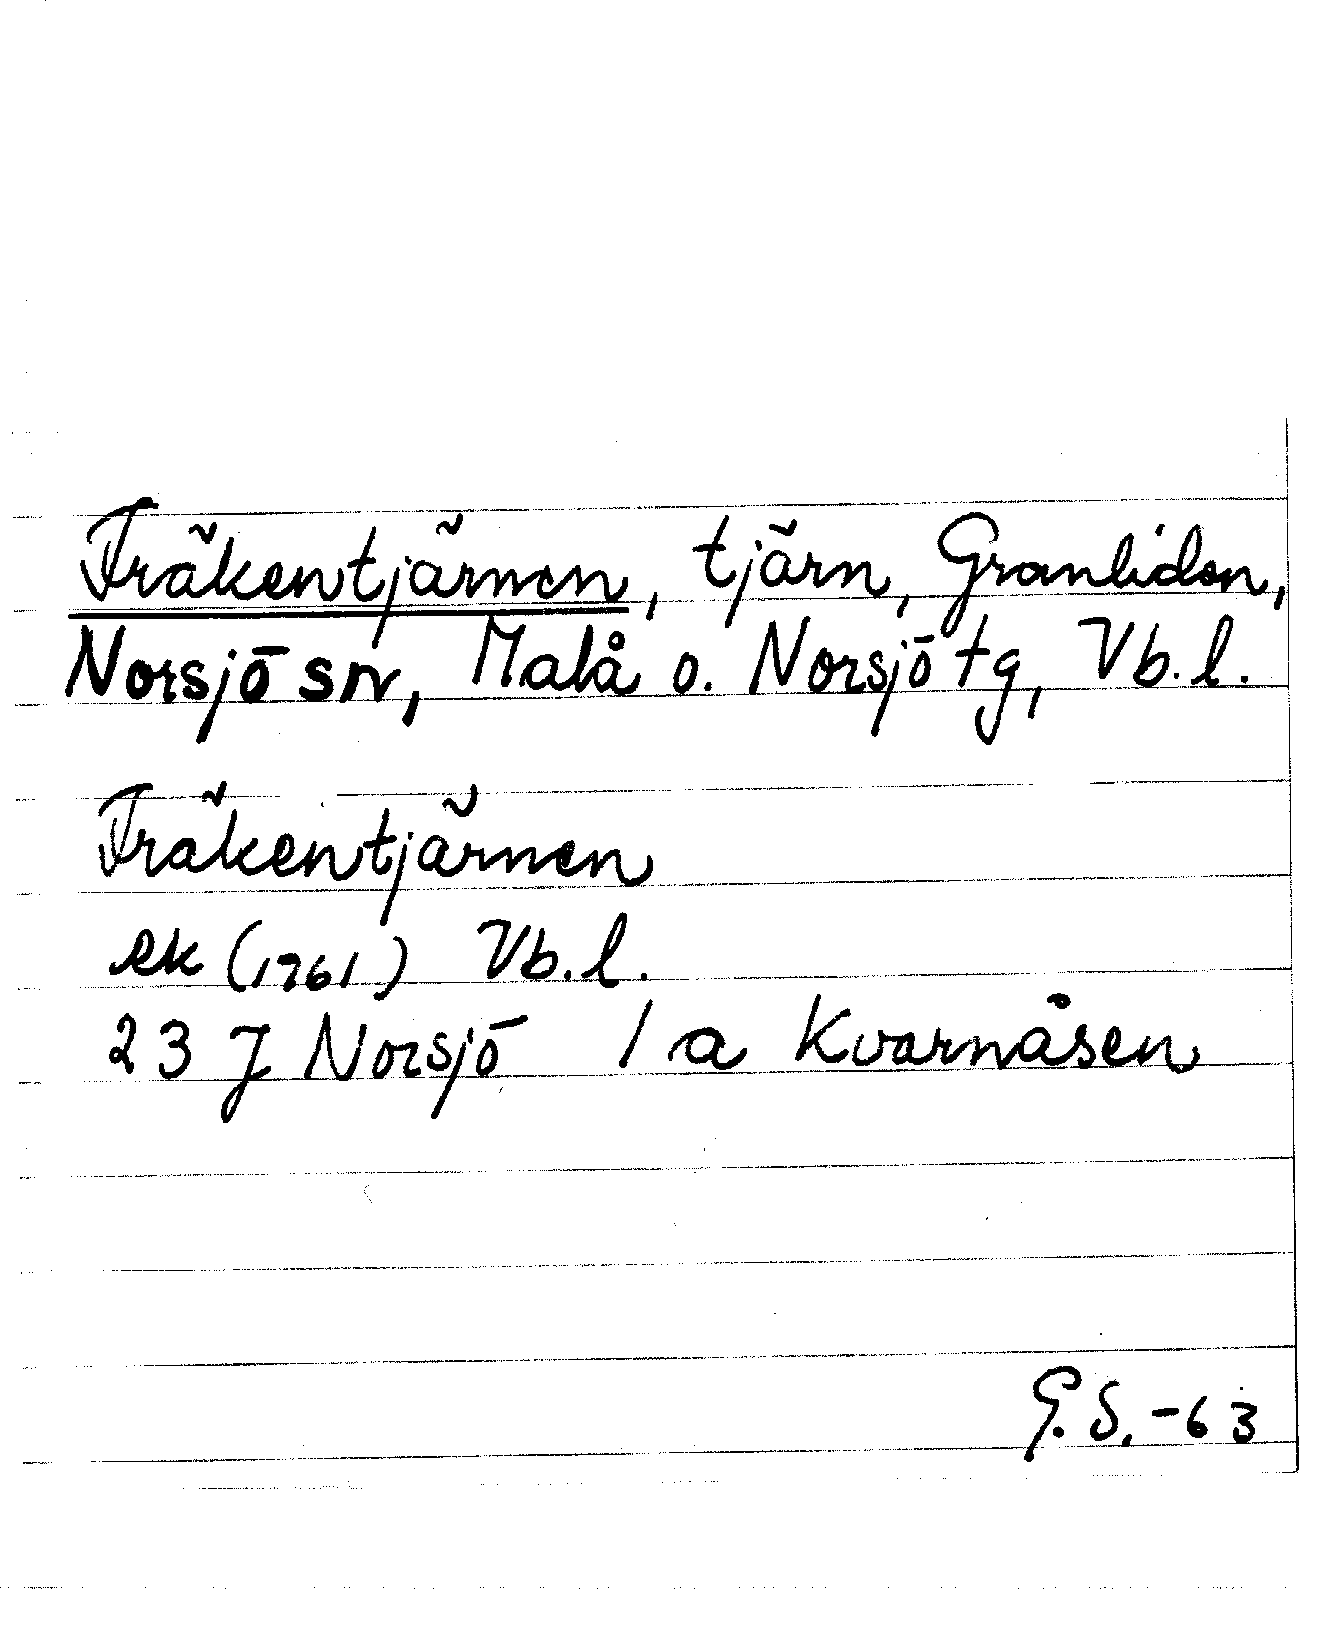 Fräkentjärnen, tjärn, Granliden,
Norsjö sn, Malå o. Norsjö tg, Vb. l.
Fräkentjärnen
ek (1961) Vb. l.
23 J Norsjö 1 a Kvarnåsen
G. S. -63